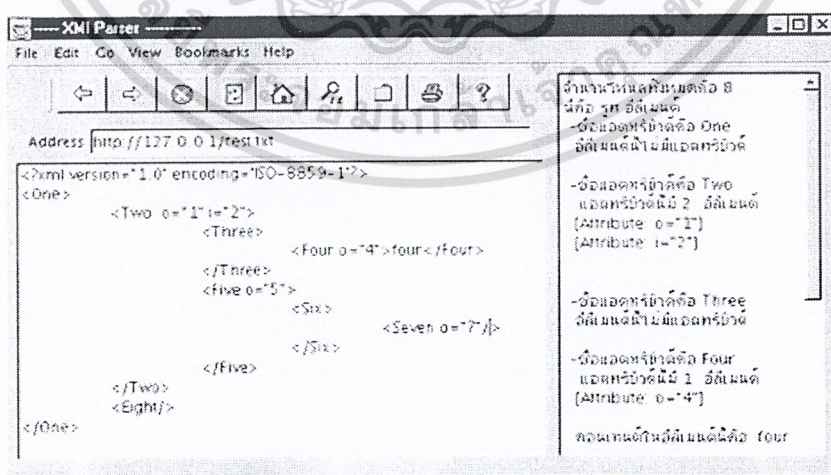 ---- XMl Parser ----------
File Edit Go View Bookmarks Help
Address http://127.0.0.1/test.txt
<?xml version="1.0" encoding="ISO-8859-1"?>
<One>
<Two o="1" i="2">
<Three>
<Four o="4">four</Four>
</Three>
<Five o="5">
<Six>
<Seven o="7"/>
</Six>
</Five>
</Two>
<Eight/>
</One>
จำนวนโหนดทั้งหมดคือ 8
นี่คือ รูท อีลีเมนต์
-ชื่อแอตทริบิวต์คือ One
อีลีเมนต์นี้ไม่มีแอตทริบิวต์
-ชื่อแอตทริบิวต์คือ Two
แอตทริบิวต์นี้มี 2 อีลีเมนต์
[Attribute: o="1"]
[Attribute: i="2"]
-ชื่อแอตทริบิวต์คือ Three
อีลีเมนต์นี้ไม่มีแอตทริบิวต์
-ชื่อแอตทริบิวต์คือ Four
แอตทริบิวต์นี้มี 1 อีลีเมนต์
[Attribute: o="4"]
คอนเทนต์ในอีลีเมนต์นี้คือ four